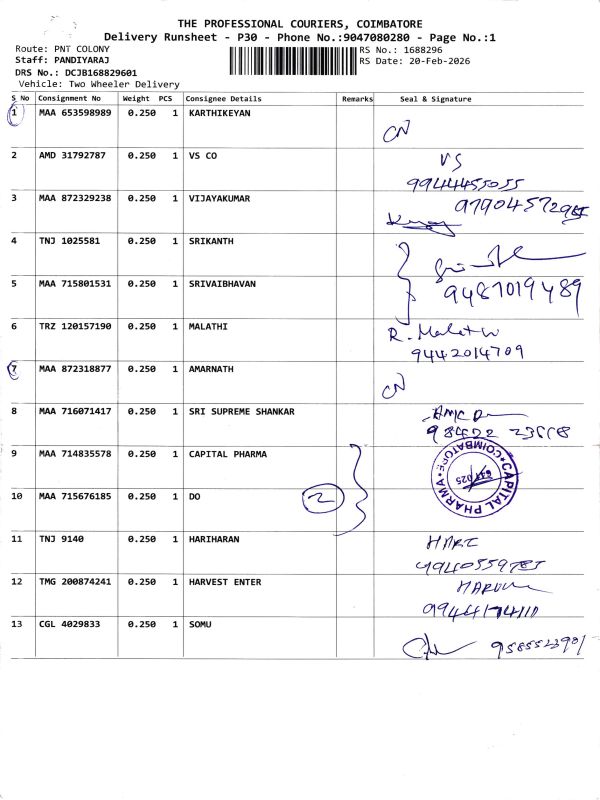 THE PROFESSIONAL COURIERS, COIMBATORE
Delivery Runsheet - P30 - Phone No.:9047080280 - Page No.:1
Route: PNT COLONY RS No.: 1688296
Staff: PANDIYARAJ RS Date: 20-Feb-2026
DRS No.: DCJB168829601
Vehicle: Two Wheeler Delivery
S No Consignment No Weight PCS Consignee Details Remarks Seal & Signature
1 MAA 653598989 0.250 1 KARTHIKEYAN
CN
2 AMD 31792787 0.250 1 VS CO VS
9944455055
3 MAA 872329238 0.250 1 VIJAYAKUMAR
4 TNJ 1025581 0.250 1 SRIKANTH
5 MAA 715801531 0.250 1 SRIVAIBHAVAN 9487019489
6 TRZ 120157190 0.250 1 MALATHI R. Malathi
9442014709
7 MAA 872318877 0.250 1 AMARNATH
CN
8 MAA 716071417 0.250 1 SRI SUPREME SHANKAR
9 MAA 714835578 0.250 1 CAPITAL PHARMA
CAPITAL PHARMA ★ COIMBATORE ★
10 MAA 715676185 0.250 1 DO 2
11 TNJ 9140 0.250 1 HARIHARAN HARI
12 TMG 200874241 0.250 1 HARVEST ENTER
13 CGL 4029833 0.250 1 SOMU
9585523901